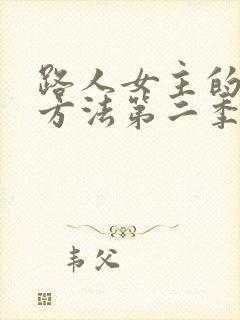 路人女主的
方法第二季
韦父